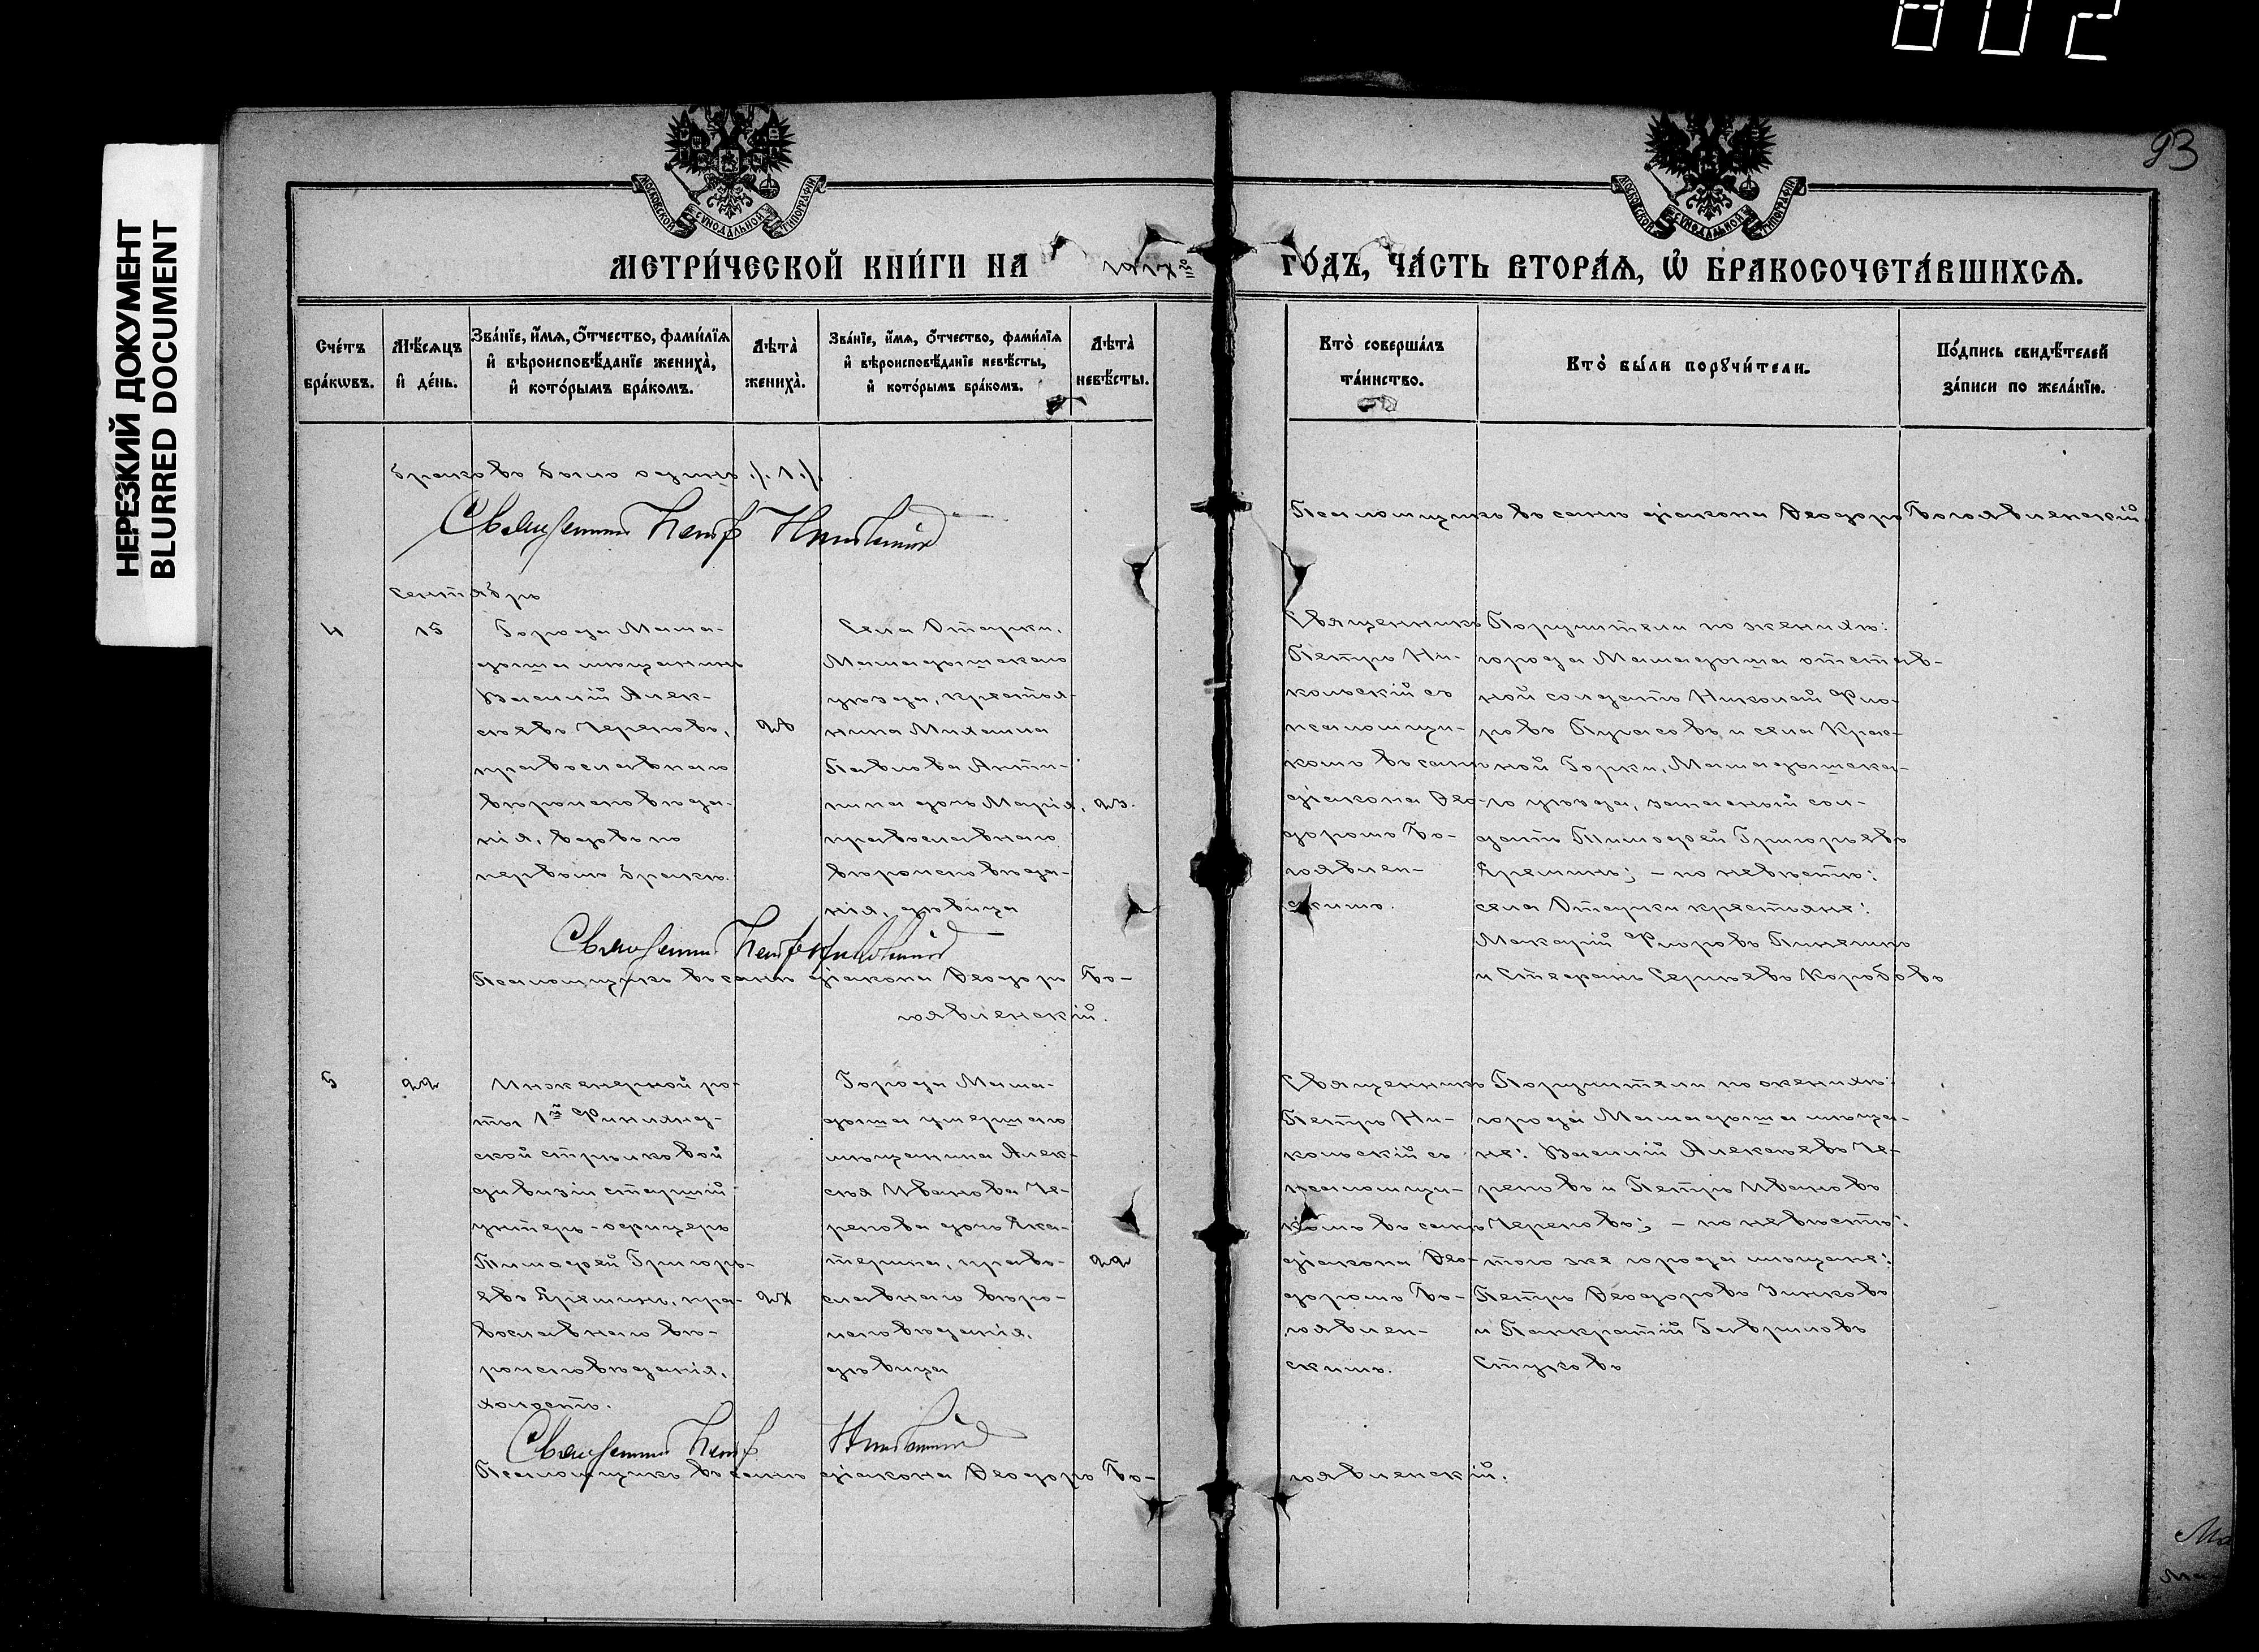 802
НЕРЕЗКИЙ ДОКУМЕНТ
BLURRED DOCUMENT
93
МОСКОВСКОЙ СѴНОДАЛЬНОЙ ТИПОГРАФІИ
МОСКОВСКОЙ СѴНОДАЛЬНОЙ ТИПОГРАФІИ
МЕТРИ́ЧЕСКОЙ КНИ́ГИ НА 1917 ГО́ДЪ, ЧА́СТЬ ВТОРА́Я, Ѡ БРАКОСОЧЕТА́ВШИХСѦ.
Сче́тъ бра́кѡвъ.
Мѣ́сѧцъ и҆ де́нь.
Зва́нїе, и҆́мѧ, ѻ҆́тчество, фами́лїѧ и҆ вѣроисповѣ́данїе жениха̀, и҆ кото́рымъ бра́комъ.
Лѣта̀ жениха̀.
Зва́нїе, и҆́мѧ, ѻ҆́тчество, фами́лїѧ и҆ вѣроисповѣ́данїе невѣ́сты, и҆ кото́рымъ бра́комъ.
Лѣта̀ невѣ́сты.
Кто̀ соверша́лъ та́инство.
Кто̀ бы́ли порꙋчи́тели.
По́дпись свидѣ́телей за́писи по жела́нїю.
браковъ было одинъ /.1./.
Священникъ Петръ Никольскій
Псаломщикъ въ санѣ діакона Ѳеодоръ Богоявленскій.
Сентябрь
4
15
Города Мама-
дыша мѣщанинъ
Василій Алек-
сѣевъ Череповъ,
православнаго
вѣроисповѣда-
нія, вдовъ по
первомъ бракѣ.
Села Отарки,
Мамадышскаго
уѣзда, крестья-
нина Михаила
Павлова Анти-
пина дочь Марія,
православнаго
вѣроисповѣда-
нія, дѣвица
Священникъ
Петръ Ни-
кольскій съ
псаломщи-
комъ въ санѣ
діакона Ѳео-
доромъ Бо-
гоявлен-
скимъ.
Поручители по женихѣ:
города Мамадыша отстав-
ной солдатъ Николай Фло-
ровъ и села Крас-
ной Горки, Мамадышска-
го уѣзда, запасный сол-
датъ Тимофей Григорьевъ
Еремин; – по невѣстѣ:
села Отарки крестьяне:
Макарій Флоровъ
и Стефанъ Сергѣевъ Коробовъ
Священникъ Петръ Никольскій
Псаломщикъ въ санѣ діакона Ѳеодоръ Бо-
гоявленскій.
5
22
Инженерной ро-
ты 1й Финлянд-
ской стрѣлковой
дивизіи старшій
унтеръ-офицеръ
Тимофей Григорь-
евъ Ереминъ, пра-
вославнаго вѣ-
роисповѣданія,
холостъ.
Города Мама-
дыша умершаго
мѣщанина Алек-
сѣя Иванова Че-
репова дочь Ека-
терина, право-
славнаго вѣро-
исповѣданія,
дѣвица
22
Священникъ
Петръ Ни-
кольскій съ
псаломщи-
комъ въ санѣ
діакона Ѳео-
доромъ Бо-
гоявлен-
скимъ.
Поручители по женихѣ:
города Мамадыша мѣща-
не: Василій Алексѣевъ Че-
реповъ и Петръ Ивановъ
Череповъ; – по невѣстѣ:
того же города мѣщане:
Петръ Ѳеодоровъ Зинковъ
и Панкратій Гавриловъ
Стуковъ
Священникъ Петръ Никольскій
Псаломщикъ въ санѣ діакона Ѳеодоръ Бо-
гоявленскій.